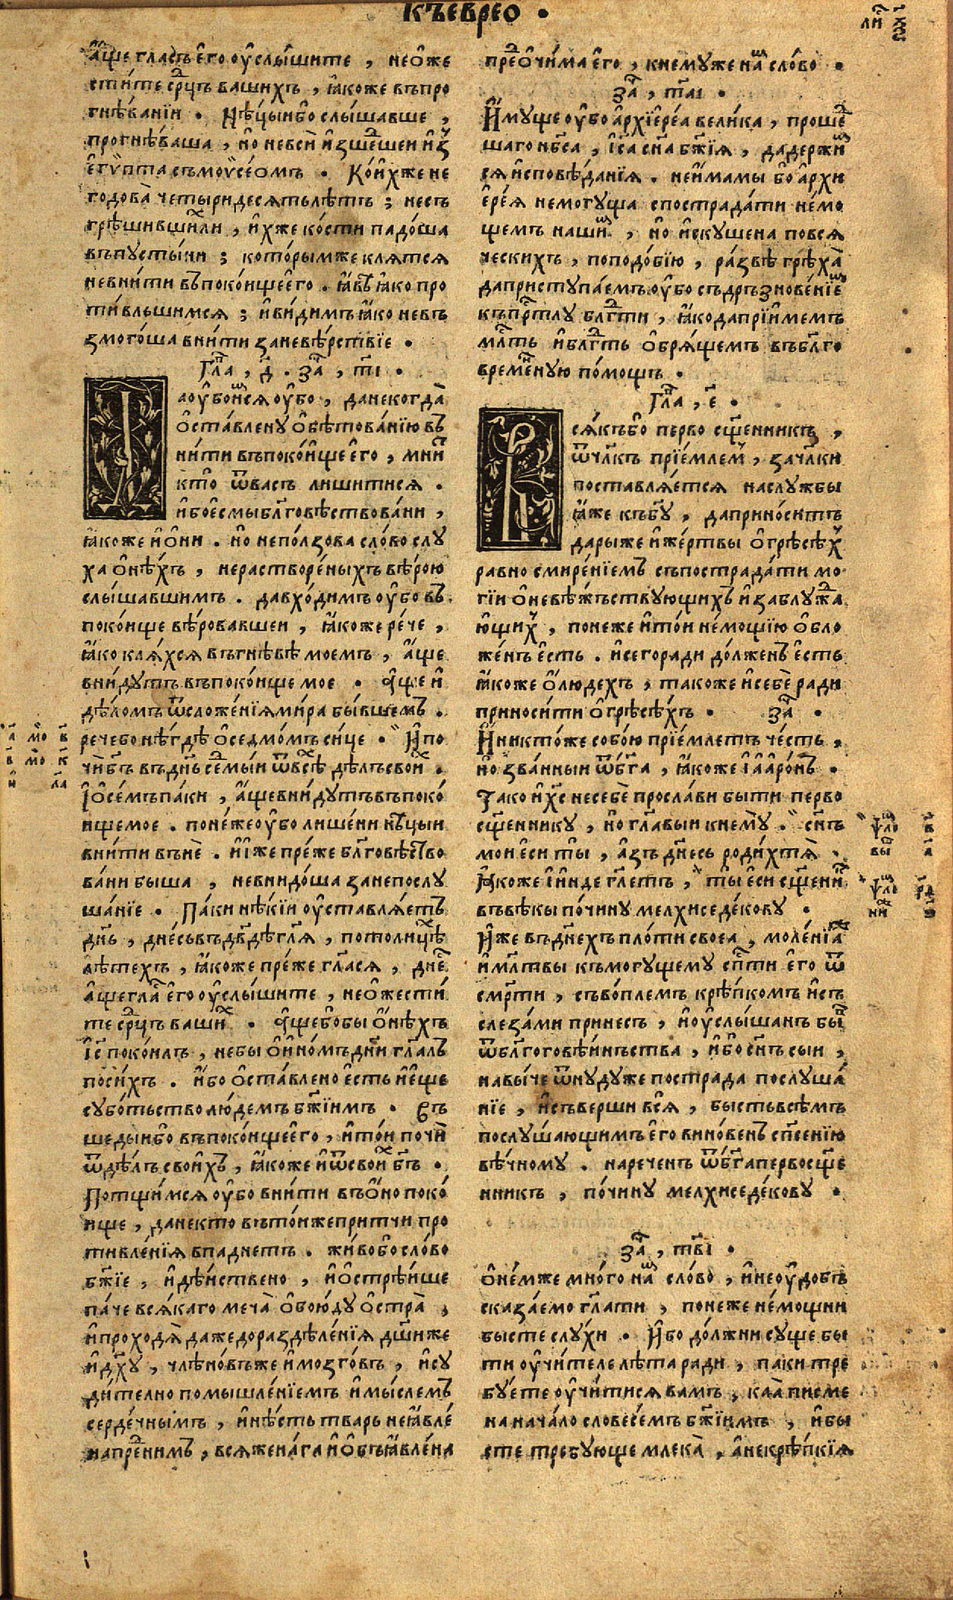 къеврео ·
а҆́ще гла́съ є҆го̀ оу҆слы́шите , не ѡ҆же
сти́те срⷣцъ ва́шихъ , ꙗ҆́коже въ про
гнѣ́ванїи · Нѣ́цыи бо слы́шавше ,
прогнѣ́ваша , но не всѝ и҆зше́дшеи и҆з̾
є҆гѵ́пта съ моѵсе́омъ · Кои́хже не
годова̀ четы́ридесѧть лѣ́тъ ; не съ
грѣши́вшили , и҆́хже ко́сти падо́ша
въ пусты́ни ; кото́рымже клѧ́тсѧ
не вни́ти въ поко́ище є҆го̀ · ꙗ҆́вѣ ꙗ҆́ко про
ти́вльшимсѧ ; и҆ ви́димъ ꙗ҆́ко не въ
змого́ша вни́ти за невѣ́рствїе ·
Гла̀ , д҃ · за̀ , т҃і ·
аоу҆бои́мсѧ оу҆́бо , да некогда̀
ѡ҆ста́влену ѡ҆бѣтова́нїю въ
ни́ти въ поко́ище є҆го̀ , мни́т
кто̀ ѿ ва́съ лиши́тисѧ ·
и҆́бо є҆смы̀ бл҃говѣствова́ни ,
ꙗ҆́коже и҆ ѻ҆ни · но не по́лзова сло́во слу
ха ѻ҆нѣ́хъ , не растворе́ныхъ вѣ́рою
слы́шавшимъ · да вхо́димъ оу҆́бо въ
поко́ище вѣ́ровавшеи , ꙗ҆́коже рече́ ,
ꙗ҆́ко клѧ́хсѧ въ гнѣ́вѣ мое́мъ , а҆́ще
вни́дутъ въ поко́ище мое · а҆́ще и҆
дѣ́ломъ ѿ сложе́нїѧ ми́ра бы́вшемъ ·
рече́ бо нѣ́гдѣ ѡ҆ седмо́мъ си́це · И҆ по
чѝ бг҃ъ въ дн҃ь се́дмыи ѿ все́хъ дѣ́лъ свои́х ·
И҆ ѡ҆ се́мъ па́ки , а҆́ще вни́дутъ въ поко́
ище мое · поне́же оу҆́бо лише́ни нѣ́цыи
вни́ти въ нѐ · и҆ и҆̀же пре́же бл҃говѣство
ва́ни бы́ша , не внидо́ша за непослу
ша́нїе · Па́ки нѣ́кїи оу҆ставлѧ́етъ
дн҃ь , дне́сь въ дв҃дѣ гл҃ѧ , по толи́цѣ
лѣ́техъ , ꙗ҆́коже пре́же гл҃асѧ , дне́
а҆́ще гла́ є҆го̀ оу҆слы́шите , не ѡ҆жести́
те срⷣцъ ва́ших · а҆́ще бо бы ѻ҆нѣ́хъ
і҆с҃ поко́илъ , не бы ѡ҆ и҆но́мъ дни́ гл҃алъ
по си́хъ · и҆́бо ѡ҆ста́влено є҆́сть и҆ є҆ще
субо́тьство лю́демъ бж҃їимъ · Въ
ше́дыи бо въ поко́ище є҆го̀ , и҆ то́и почи́
ѿ дѣ́лъ свои́хъ , ꙗ҆́коже и҆ ѿ свои́х бг҃ъ ·
Потщи́мсѧ оу҆́бо вни́ти въ ѻ҆́но поко́
ище , да не кто̀ въ то́иже при́тчи про
тивле́нїѧ впаднетъ · жи́во бо сло́во
бж҃їе , и҆ дѣ́иствено , и҆ ѻ҆стрѣ́ише
па́че всѧ́каго меча̀ ѻ҆бою́ду ѻ҆стра̀ ,
и҆ проходѧ̀ даже до раздѣле́нїѧ дш҃и же
и҆ дх҃у , чле́новъ же и҆ мозго́въ , и҆ су
ди́телно помышле́нїемъ и҆ мы́слемъ
серде́чнымъ , и҆ нѣ́сть тва́рь неꙗ҆вле́
на пред ни́мъ , всѧ́ же нага и҆ ѡ҆б̾ꙗвле́на
пред ѻ҆чи́ма є҆го̀ , к нему́же на́м сло́во ·
за̀ , т҃аі ·
И҆му́ще оу҆́бо а҆рхїере́а вели́ка , проше́д
шаго нб҃са , і҆са сн҃а бж҃їѧ , да держи́м
сѧ и҆сповѣ́данїѧ · не и҆́мамы бо а҆рхи
є҆ре́ѧ немогу́ща спострада́ти немо
щемъ на́шим , но и҆скушена по всѧ́
ческихъ , по подо́бїю , ра́звѣ грѣха̀
да приступа́емъ оу҆́бо съ дръзнове́нїем
къ пртⷭ҇лу бл҃гти , ꙗ҆́ко да прїи́мемъ
мл҃ть и҆ бл҃гть ѡ҆брѧ́щемъ въ бл҃го
време́нную по́мощь ·
Гла̀ , є҃ ·
сѧ́къ бо перво сщ҃е́нникъ ,
ѿ чл҃къ прїе́млем , за чл҃ки
поставлѧ́етсѧ на слу́жбы
ꙗ҆́же къ бг҃у , да прино́ситъ
да́ры же и҆ же́ртвы ѡ҆ грѣсѣ́х
равно смире́нїемъ съпострада́ти мо
гїи ѡ҆ невѣ́жъствующихъ и҆ заблужда́
ю҆щих , поне́же и҆ то́и не́мощїю ѡ҆бло
же́нъ є҆́сть · и҆ сего ра́ди до́лженъ є҆́сть
ꙗ҆́коже ѡ҆ лю́дехъ , та́коже и҆ ѡ҆ себе́ ра́ди
приноси́ти ѡ҆ грѣсѣ́хъ · за̀ ·
И҆ никто́же собо́ю прїе́млетъ че́сть ,
но зва́нныи ѿ бг҃а , ꙗ҆́коже і҆ а҆а҆ро́нъ ·
Та́ко и҆ хс҃ не себѐ просла́ви бы́ти перво
сщ҃еннику , но гл҃авыи к нему̀ · сн҃ъ
мо́и є҆сѝ ты̀ , а҆́зъ дн҃е́сь роди́хтѧ̀ ·
Ꙗ҆́коже і҆ и҆́нде гл҃етъ , ты̀ є҆сѝ сщ҃е́нник
въ вѣ́кы по чи́ну мелхиседе́кову ·
И҆́же въ дн҃ехъ пло́ти своеа , моле́нїа
и҆ мл҃твы къ могу́щему сп҃сти є҆го̀ ѿ
сме́рти , съ во́племъ крѣ́пкомъ и҆ съ
слеза́ми прине́съ , и҆ оу҆слы́шанъ бы́
ѿ бл҃гоговѣ́инъства , и҆́бо сн҃ъ сыи ,
навы́че ѿ ну́дуже пострада послуша́
нїе , и҆ съверши́ всѧ̀ , бы́сть всѣ́мъ
послу́шающимъ є҆го̀ вино́венъ спс҃е́нїю
вѣ́чному · нарече́нъ ѿ бг҃а первосщ҃е
нникъ , по чи́ну мелхиседе́кову ·
за̀ , т҃ві ·
ѡ҆ не́мже мно́го на́м сло́во , и҆ не оу҆до́бь
сказа́емо гл҃ати , поне́же не́мощни
бы́сте слу́хи · И҆бо до́лжни су́ще бы
ти оу҆чи́теле лѣ́та ра́ди , па́ки тре
бу́ете оу҆чи́тисѧ ва́мъ , ка́ѧ писме
на нача́ло словесе́мъ бж҃їимъ , и҆ бы́
сте тре́бующе млека̀ , а҆ не крѣ́пкїѧ